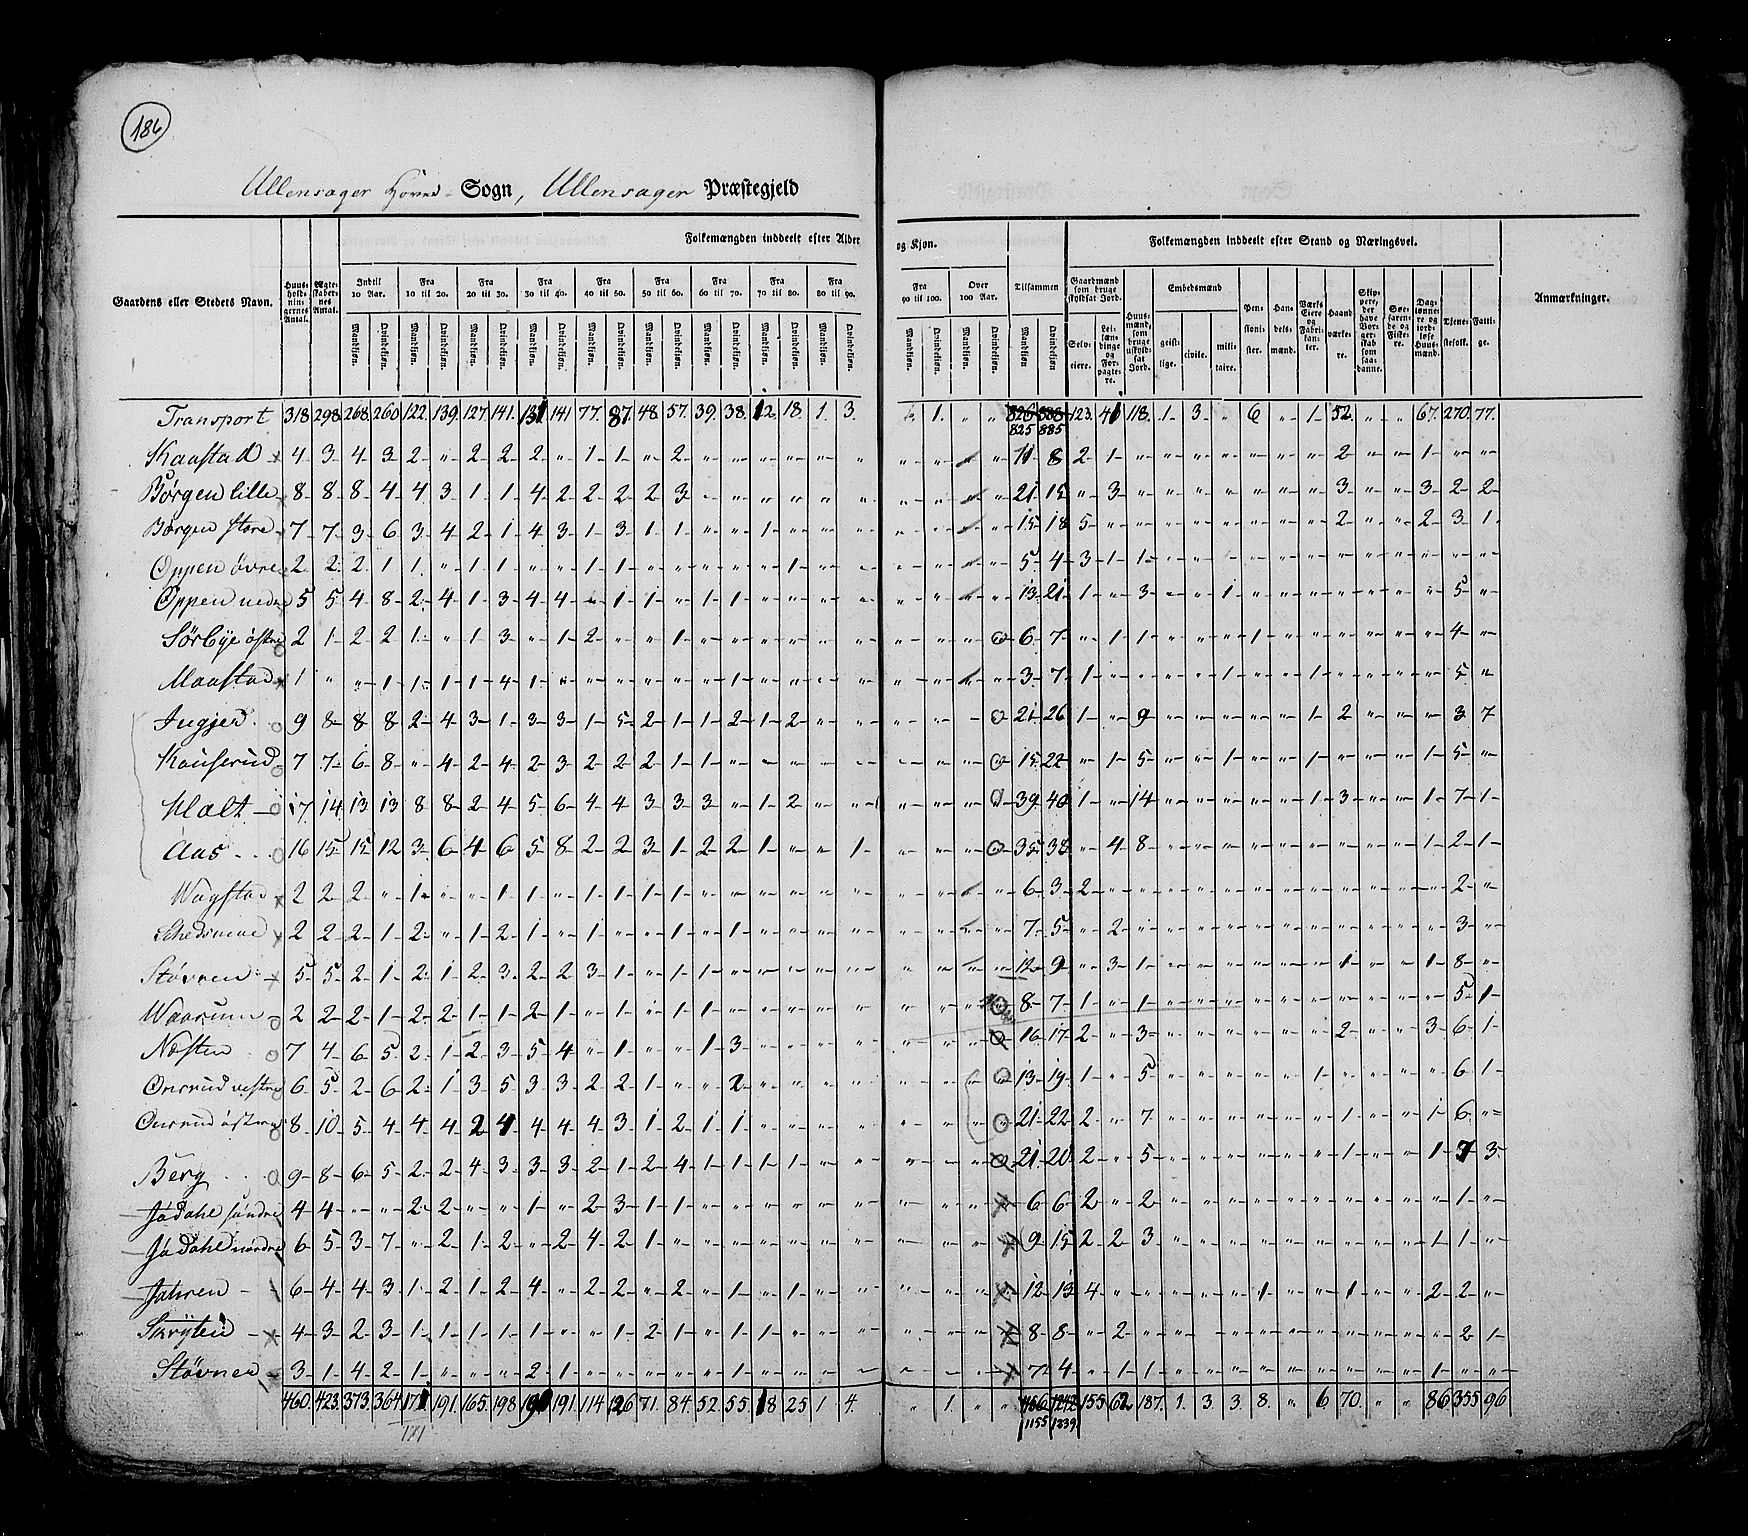 186
Ullensager Hoved- Sogn, Ullensager Præstegjeld
Folkemængden inddeelt efter Alder og Kjøn.
Folkemængden inddeelt efter Stand og Næringsvei.
Gaardens eller Stedets Navn.
Huus-holdnin-gernes Antal.
Ægte-skaber-nes Antal.
Indtil 10 Aar.
Fra 10 til 20.
Fra 20 til 30.
Fra 30 til 40.
Fra 40 til 50.
Fra 50 til 60.
Fra 60 til 70.
Fra 70 til 80.
Fra 80 til 90.
Fra 90 til 100.
Over 100 Aar.
Tilsammen
Mandkjøn. Qvindekjøn.
Gaardmænd som bruge skyldsat Jord.
Selveiere.
Leilændinge og Forpagtere.
Huusmænd, som bruge uskyldsat Jord.
Embedsmænd
geistlige. civile. militaire.
Pensionister.
Handelsmænd.
Værks Eiere og Fabrikanter.
Haandværkere.
Skippere, der have Borgerskab som saadanne.
Søefarende og Fiskere.
Daglønnere og jordløse Huusmænd.
Tjenestefolk.
Fattige.
Anmærkninger.
Transport 318 298 268 260 122. 139. 127 141. 131 141 77. 87 48 57. 39. 38. 12. 18. 1. 3. " 1. " " 825 885 123. 41 118. 1. 3. " 6 " 1. 52. " " 67. 270. 77.
Kaastad 4 3 4 3 2 " 2 2 2 " 1 1 " 2 " " " " " " " " " " 11 8 2 1 " " " " " " " 2 " " 1 " "
Børgen lille 8 8 8 4 4 3 1 1 4 2 2 2 2 3 " " " " " " " " " " 21 15 " 3 " " " " " " " 3 " " 3 2 2
Børgen store 7 7 3 6 3 4 2 1 4 3 1 3 1 1 " " 1 " " " " " " " 15 18 5 " " " " " " " " 2 " " 2 3 1
Oppen øvre 2 2 2 1 1 " 1 1 " " 1 1 " " " " " 1 " " " " " " 5 4 3 1 1 " " " " " " " " " " " "
Oppen nedre 5 5 4 8 2 4 1 3 4 4 " 1 1 " 1 1 " " " " " " " " 13 21 1 " 3 " " 1 " " " " " " " 5 "
Sørbye østre 2 1 2 2 1 " 1 3 " 1 2 " " 1 " " " " " " " " " " 6 7 " 1 1 " " " 1 " " " " " " 4 "
Maastad 1 " " 1 1 1 1 4 1 " " " " " " 1 " " " " " " " " 3 7 1 " " " 1 " 1 " 1 " " " " 5 "
Ingjer 9 8 8 8 2 4 3 1 3 3 1 5 2 1 1 2 1 2 " " " " " " 21 26 1 " 9 " " " " " 1 2 " " " 3 7
Kauserud 7 7 6 8 " 4 2 4 2 3 2 2 2 1 1 " " " " " " " " " 15 22 " 1 5 " " 1 " " 1 " " " 1 5 "
Mælt 17 14 13 13 8 8 2 4 5 6 4 4 3 3 3 " 1 2 " " " " " " 39 40 1 " 14 " " " " " 1 3 " " 1 7 1
Aas 16 15 15 12 3 6 4 6 5 8 2 2 3 1 2 2 1 " " 1 " " " " 35 38 " 4 8 " " " " " " " " " 1 2 1
Wagstad 2 2 2 " 1 " " 1 1 " 1 1 1 1 " " " " " " " " " " 6 3 2 " " " " " " " " " " " " 2 "
Schedsmoe 2 2 2 1 2 " 1 2 1 " 1 " " 1 " 1 " " " " " " " " 7 5 " 2 " " " " " " " " " " " 3 "
Støvren 5 5 2 1 2 1 2 3 2 2 3 1 " 1 1 " " " " " " " " " 12 9 " 3 1 " " " " " " 1 " " 1 8 "
Waarum 2 2 2 1 2 2 1 1 2 1 " 1 " 1 1 " " " " " " " " " 8 7 1 " 1 " " " " " " " " " " 5 1
Nosten 7 4 6 5 2 1 2 3 5 4 " 1 " " 1 3 " " " " " " " " 16 17 2 " 3 " " " " " " 2 " " 3 6 1
Onsrud vestre 6 5 2 6 2 1 3 5 3 3 2 2 1 " " 2 " " " " " " " " 13 19 1 " 5 " " " " " 1 " " " " 6 1
Onsrud østre 8 10 5 4 4 4 2 4 4 4 4 3 1 2 1 1 " " " " " " " " 21 22 2 " 7 " " " " " " 1 " " 1 6 "
Berg 9 8 6 5 2 2 4 3 3 3 2 1 2 4 1 1 1 1 " " " " " " 21 20 2 " 5 " " " " " " 1 " " 1 7 3
Jødahl søndre 4 4 " " 2 2 " " 1 " 2 3 1 1 " " " " " " " " " " 6 6 2 " 2 " " " " " " " " " " 1 "
Jødahl nordre 6 5 3 7 " 2 1 2 " 2 4 2 1 " " " " " " " " " " " 9 15 2 2 3 " " " " " " " " " 1 1 "
Jahren 6 4 4 3 1 2 1 2 4 " 2 2 " 2 " 1 " 1 " " " " " " 12 13 4 " " " " " 1 " " 1 " " 2 2 "
Skryten 4 3 2 3 1 1 1 1 1 " " 1 2 1 " 1 1 " " " " " " " 8 8 " 2 " " " " " " " " " " " 2 1
Støvner 3 1 4 2 1 " " " 2 1 " " " " " 1 " " " " " " " " 7 4 " 1 1 " " " " " " " " " 1 " "
460 423 373 364 171 191. 165. 198 191 191 114 126 71. 84 52 55. 18 25 1 4. " 1. " " 1155 1239 155 62 187. 1. 3. 3. 8. " 6 70. " " 86 355 96
171